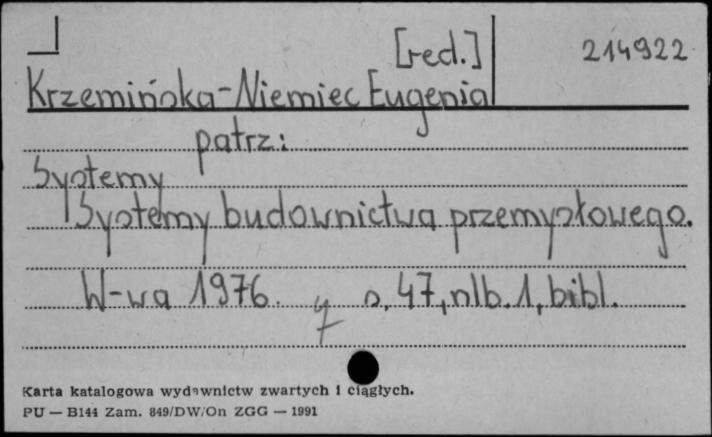 [red.] 214922
Krzemińska-Niemiec Eugenia
patrz:
Systemy
Systemy budownictwa przemysłowego.
W-wa 1976. s. 47, nlb. 1, bibl.
Karta katalogowa wydawnictw zwartych i ciągłych.
PU — B144 Zam. 849/DW/On ZGG — 1991